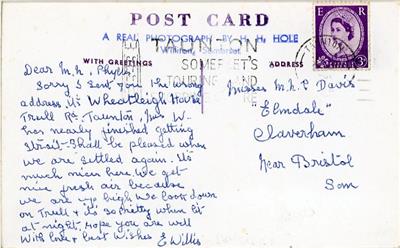 POST CARD
A REAL PHOTOGRAPH BY H. H. HOLE
Williton, Somerset
WITH GREETINGS
ADDRESS
TAUNTON
SOMERSET'S
TOURING
E R
3D
Dear M.K, Phyllis
Sorry I sent you the wrong
address. Its Wheatleigh House
Trull Rd. Taunton, W
has nearly finished getting
strait - Shall be pleased when
we are settled again. Its
much nicer here. We get
nice fresh air because
we are up high We look down
on Trull & its so pretty when lit
at night. Hope you are well
With love & best wishes E Willis
Misses M.K.P Davis
"Elmdale"
Claverham
Near Bristol
Som